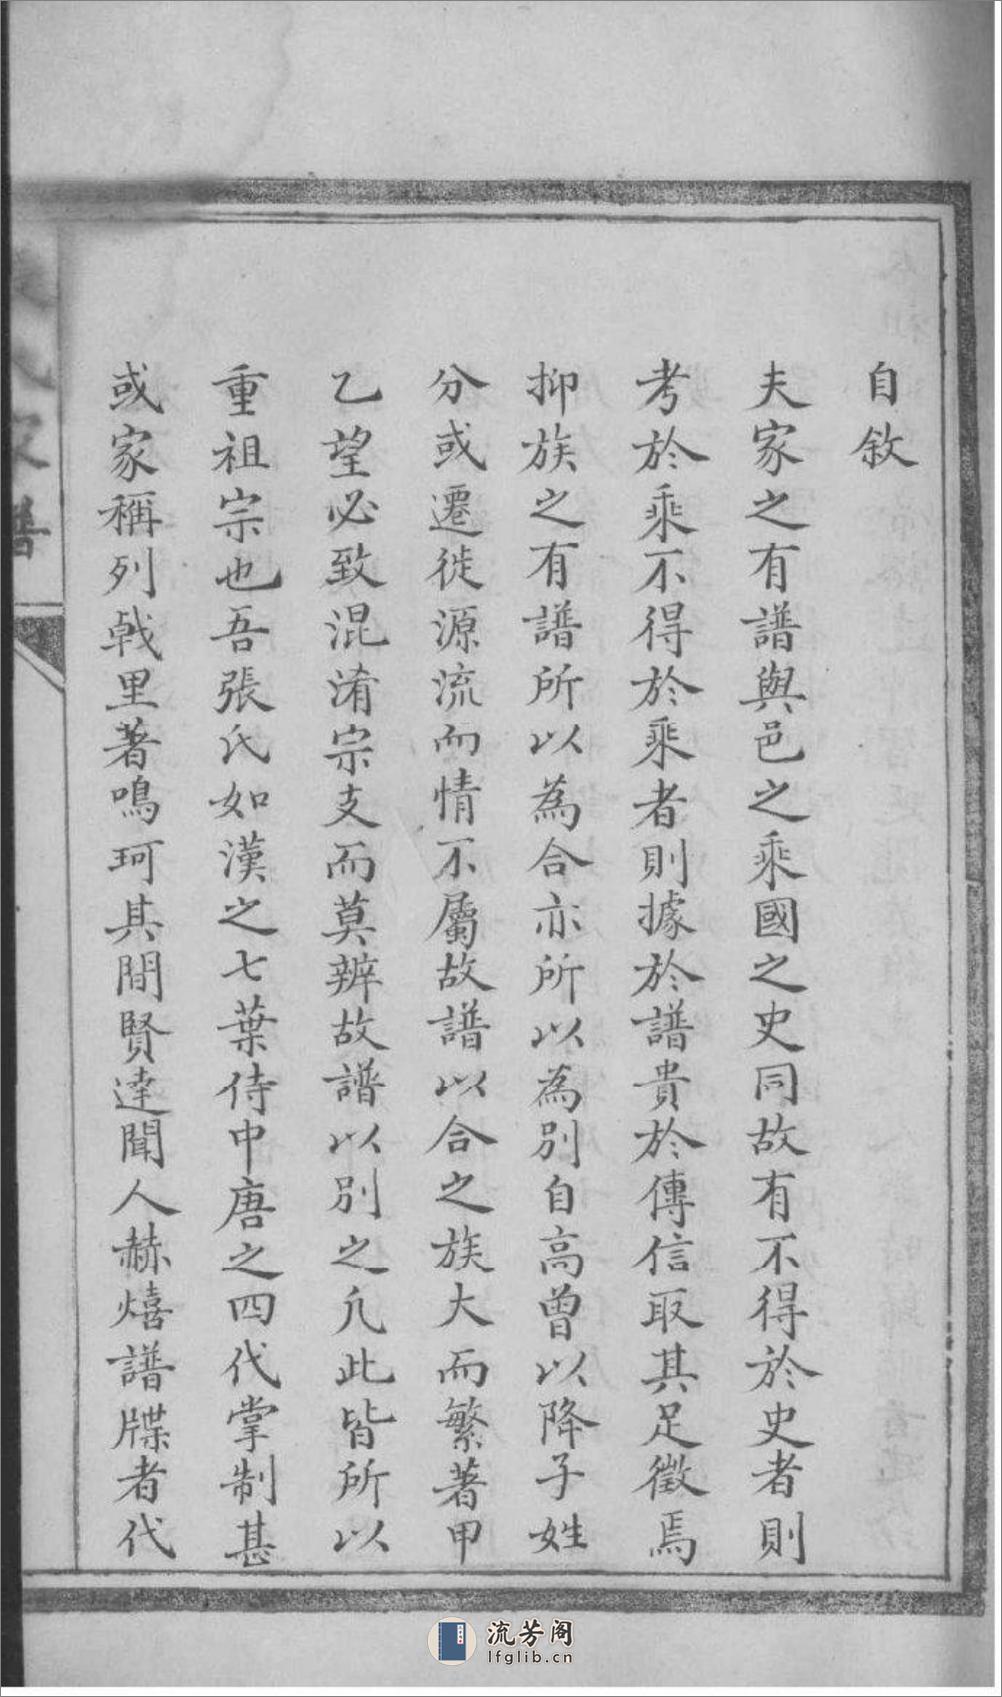 自敘
夫家之有譜與邑之乘國之史同故有不得於史者則
考於乘不得於乘者則據於譜貴於傳信取其足徵焉
抑族之有譜所以為合亦所以為別自高曾以降子姓
分或遷徙源流而情不屬故譜以合之族大而繁著甲
乙望必致混淆宗支而莫辨故譜以別之凡此皆所以
重祖宗也吾張氏如漢之七葉侍中唐之四代掌制甚
或家稱列戟里著鳴珂其間賢達聞人赫熺譜牒者代
家譜
流芳阁
lfglib.cn